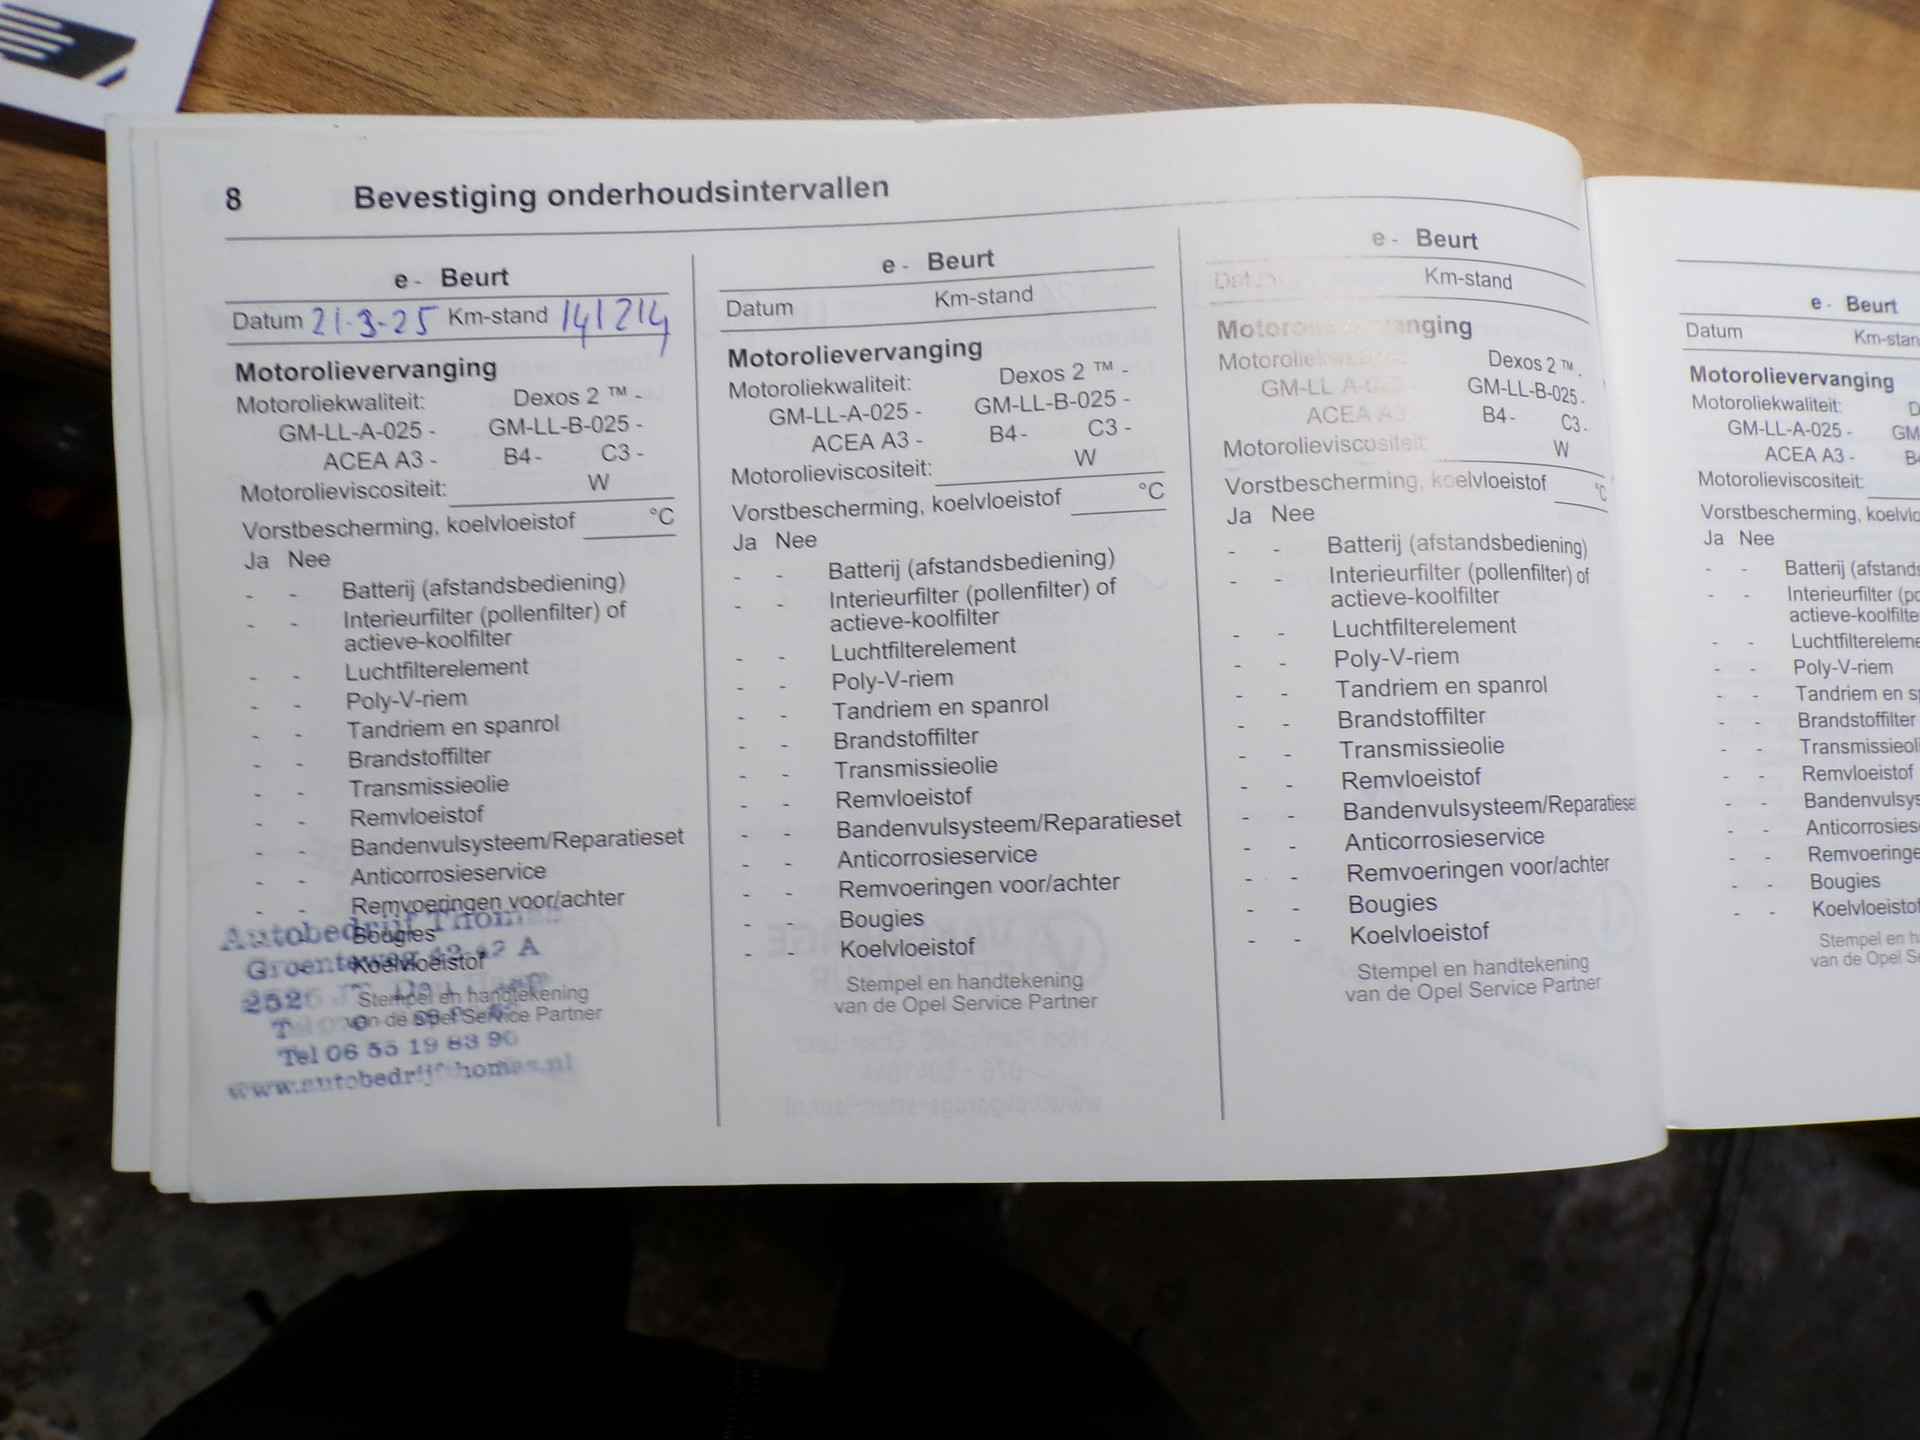 8 Bevestiging onderhoudsintervallen
e - Beurt
Datum 21-3-25 Km-stand 141214
Motorolievervanging
Motoroliekwaliteit: Dexos 2 ™ -
GM-LL-A-025 - GM-LL-B-025 -
ACEA A3 - B4 - C3 -
Motorolieviscositeit: W
Vorstbescherming, koelvloeistof °C
Ja Nee
- - Batterij (afstandsbediening)
- - Interieurfilter (pollenfilter) of
actieve-koolfilter
- - Luchtfilterelement
- - Poly-V-riem
- - Tandriem en spanrol
- - Brandstoffilter
- - Transmissieolie
- - Remvloeistof
- - Bandenvulsysteem/Reparatieset
- - Anticorrosieservice
- - Remvoeringen voor/achter
Bougies
Koelvloeistof
Stempel en handtekening
van de Opel Service Partner
Autobedrijf Thomas
Groenteweg A
Tel 06 55 19 83 90
www.autobedrijfthomas.nl
e - Beurt
Datum Km-stand
Motorolievervanging
Motoroliekwaliteit: Dexos 2 ™ -
GM-LL-A-025 - GM-LL-B-025 -
ACEA A3 - B4 - C3 -
Motorolieviscositeit: W
Vorstbescherming, koelvloeistof °C
Ja Nee
- - Batterij (afstandsbediening)
- - Interieurfilter (pollenfilter) of
actieve-koolfilter
- - Luchtfilterelement
- - Poly-V-riem
- - Tandriem en spanrol
- - Brandstoffilter
- - Transmissieolie
- - Remvloeistof
- - Bandenvulsysteem/Reparatieset
- - Anticorrosieservice
- - Remvoeringen voor/achter
- - Bougies
- - Koelvloeistof
Stempel en handtekening
van de Opel Service Partner
e - Beurt
Datum Km-stand
Motorolievervanging
Motoroliekwaliteit: Dexos 2 ™ -
GM-LL-A-025 - GM-LL-B-025 -
ACEA A3 - B4 - C3 -
Motorolieviscositeit: W
Vorstbescherming, koelvloeistof °C
Ja Nee
- - Batterij (afstandsbediening)
- - Interieurfilter (pollenfilter) of
actieve-koolfilter
- - Luchtfilterelement
- - Poly-V-riem
- - Tandriem en spanrol
- - Brandstoffilter
- - Transmissieolie
- - Remvloeistof
- - Bandenvulsysteem/Reparatieset
- - Anticorrosieservice
- - Remvoeringen voor/achter
- - Bougies
- - Koelvloeistof
Stempel en handtekening
van de Opel Service Partner
e - Beurt
Datum Km-stan
Motorolievervanging
Motoroliekwaliteit: D
GM-LL-A-025 - GM
ACEA A3 - B4
Motorolieviscositeit:
Vorstbescherming, koelvlo
Ja Nee
- - Batterij (afstands
- - Interieurfilter (po
actieve-koolfilte
- - Luchtfiltereleme
- - Poly-V-riem
- - Tandriem en s
- - Brandstoffilter
- - Transmissieoli
- - Remvloeistof
- - Bandenvulsys
- - Anticorrosies
- - Remvoeringe
- - Bougies
- - Koelvloeistof
Stempel en h
van de Opel Se